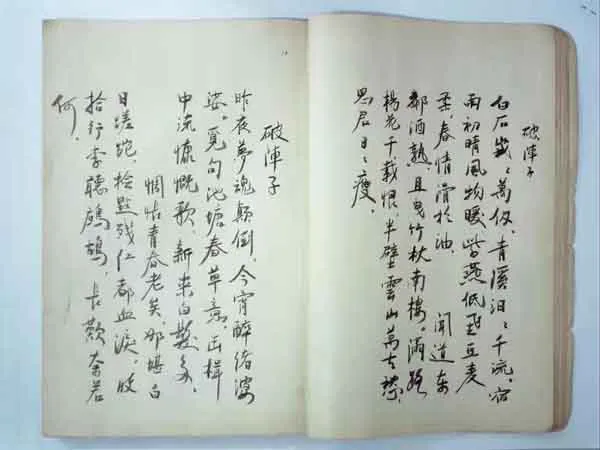 破陣子
白石巖〻萬仞，青溪汩〻千流。宿
雨初晴風物暖，紫燕低飛豆麥
柔。春情滑於油。 聞道東
鄰酒熟，且曳竹杖南樓。滿路
楊花千載恨，半壁雲山萬古愁。
思君日〻瘦。
破陣子
昨夜夢魂顛倒，今宵醉緒婆
娑。覓句池塘春草意，击楫
中流慷慨歌。新来白髮多。
青春老矣，那堪白
日蹉跎。撿點残红都血淚，收
拾行李聽鷓鴣。長歎奈若
何。